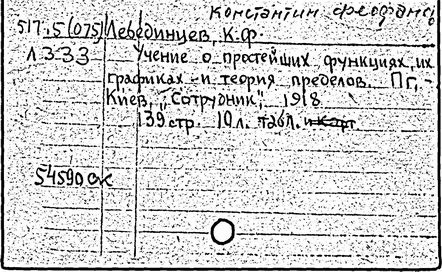 Константин Феофанов
517.5(075) Лебединцев, К.Ф.
Л 333 Учение о простейших функциях, их
графиках и теория пределов. Пг,-
Киев, "Сотрудник", 1918.
139 стр. 10 л. табл. и карт
54590 ск